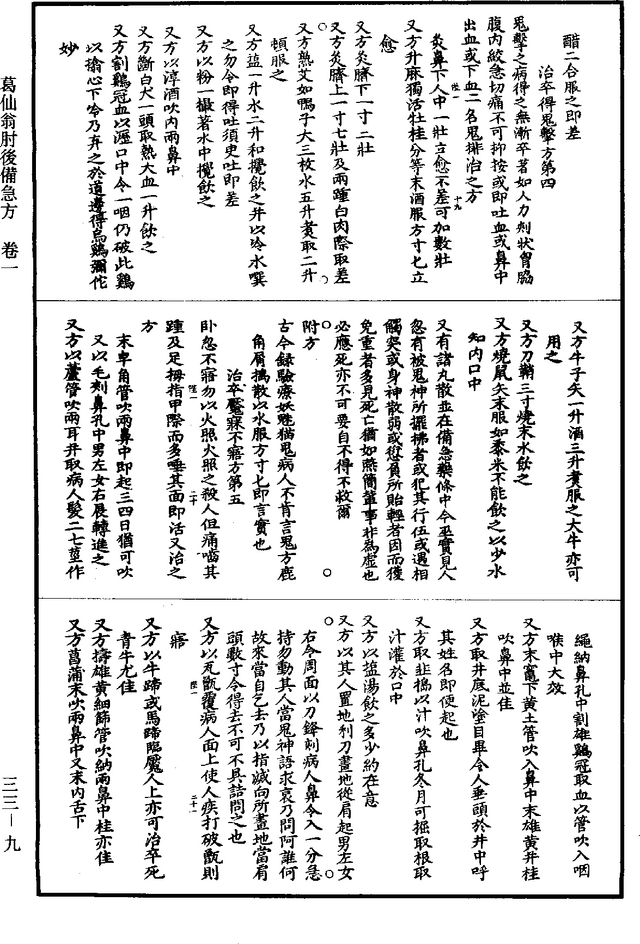 葛仙翁肘後備急方　卷一
醋二合服之即差
治卒得鬼擊方第四
鬼擊之病得之無漸卒著如人力刺狀胷脇
腹内絞急切痛不可抑按或即吐血或鼻中
出血或下血一名鬼排治之方
灸鼻下人中一壯立愈不差可加數壯
又方升麻獨活牡桂分等末酒服方寸匕立
愈
又方灸臍下一寸二壯
又方灸臍上一寸七壯及兩踵白肉際取差
又方熟艾如鴨子大三枚水五升煑取二升
頓服之
又方鹽一升水二升和攪飲之并以冷水噀
之勿令即得吐須臾吐即差
又方以粉一撮著水中攪飲之
又方以淳酒吹内兩鼻中
又方斷白犬一頭取熱犬血一升飲之
又方割鷄冠血以瀝口中令一咽仍破此鷄
以搨心下冷乃棄之於道邊得烏鷄彌佗
妙
又方牛子矢一升酒三升煑服之大牛亦可
用之
又方刀鞘三寸燒末水飲之
又方燒鼠矢末服如黍米不能飲之以少水
和内口中
又有諸丸散並在備急藥條中今巫實見人
忽有被鬼神所擺拂者或犯其行伍或遇相
觸突或身神散弱或愆負所貽輕者因而獲
免重者多見死亡猶如燕簡輩事非為虛也
必應死亦不可要自不得不救爾
附方
古今録驗療妖魅猫鬼病人不肯言鬼方鹿
角屑擣散以水服方寸匕即言實也
治卒魘寐不寤方第五
卧忽不寤勿以火照火照之殺人但痛嚙其
踵及足拇指甲際而多唾其面即活又治之
方
末皁角管吹兩鼻中即起三四日猶可吹
又以毛刺鼻孔中男左女右展轉進之
又方以蘆管吹兩耳并取病人髮二七莖作
繩納鼻孔中割雄鷄冠取血以管吹入咽
喉中大效
又方末竈下黄土管吹入鼻中末雄黄并桂
吹鼻中並佳
又方取井底泥塗目畢令人垂頭於井中呼
其姓名即便起也
又方取韭擣以汁吹鼻孔冬月可掘取根取
汁灌於口中
又方以鹽湯飲之多少約在意
又方以其人置地利刀畫地從肩起男左女
右令周面以刀鋒刺病人鼻令入一分急
持勿動其人當鬼神語求哀乃問阿誰何
故來當自乞去乃以指滅向所畫地當肩
頭數寸令得去不可不具詰問之也
又方以瓦甑覆病人面上使人疾打破甑則
寤
又方以牛蹄或馬蹄臨魘人上亦可治卒死
青牛尤佳
又方擣雄黄細篩管吹納兩鼻中桂亦佳
又方菖蒲末吹兩鼻中又末内舌下
三三—九